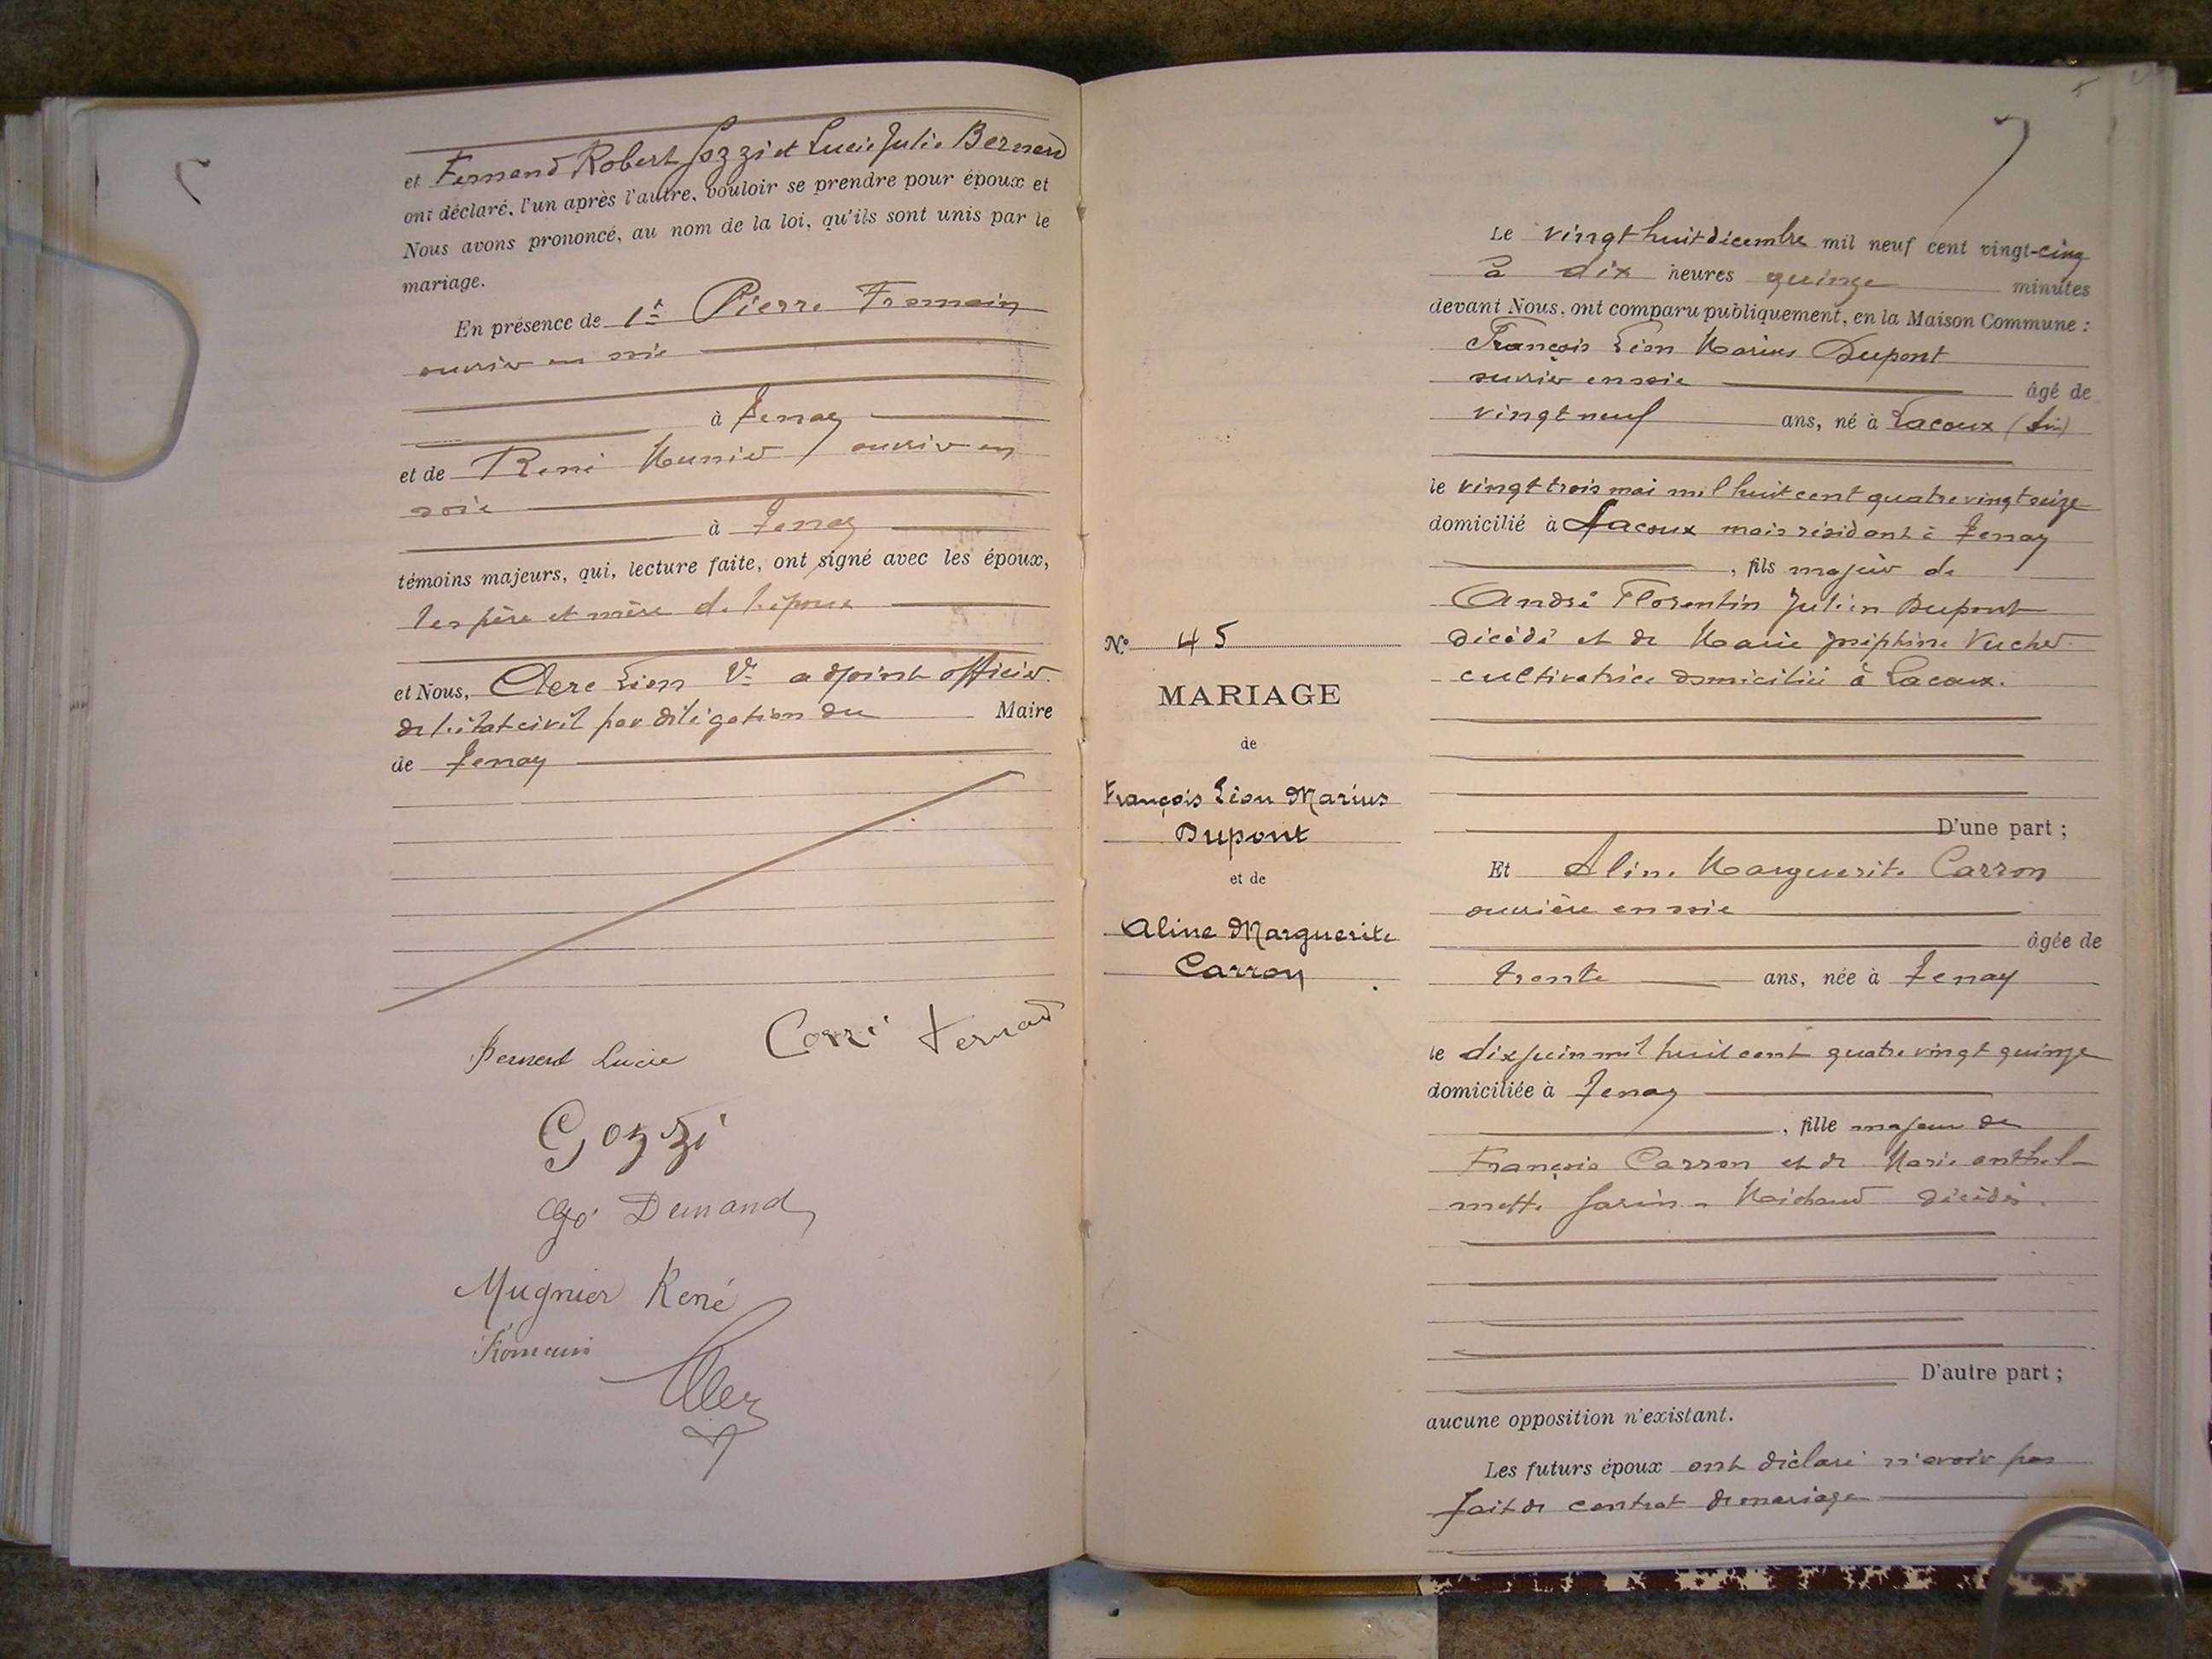 et Fernand Robert Gozzi et Lucie Julie Bernard
ont déclaré, l'un après l'autre, vouloir se prendre pour époux et
Nous avons prononcé, au nom de la loi, qu'ils sont unis par le
mariage.
En présence de 1° Pierre Fromain
ouvrier en soie
à Tenay
et de René Munier ouvrier en
soie
à Tenay
témoins majeurs, qui, lecture faite, ont signé avec les époux,
les père et mère de l'époux
et Nous, Clerc Léon adjoint officier
de l'état civil par délégation du Maire
de Tenay
Bernard Lucie Gozzi Fernand
Gozzi
Demand
Mugnier René
Clerc
Le vingt huit décembre mil neuf cent vingt-cinq
à dix heures quinze minutes
devant Nous, ont comparu publiquement, en la Maison Commune :
François Léon Marius Dupont
ouvrier en soie âgé de
vingt neuf ans, né à Lacoux (Ain)
le vingt trois mai mil huit cent quatre vingt seize
domicilié à Lacoux mais résidant à Tenay
, fils majeur de
André Florentin Julien Dupont
décédé et de Marie Joséphine Vucher
cultivatrice domiciliée à Lacoux.
D'une part ;
N° 45
MARIAGE
de
François Léon Marius
Dupont
et de
Aline Marguerite
Carron
Et Aline Marguerite Carron
ouvrière en soie
âgée de
trente ans, née à Tenay
le dix juin mil huit cent quatre vingt quinze
domiciliée à Tenay
, fille majeure de
François Carron et de Marie anthel-
mette Michaud décédés.
D'autre part ;
aucune opposition n'existant.
Les futurs époux ont déclaré n'avoir pas
fait de contrat de mariage